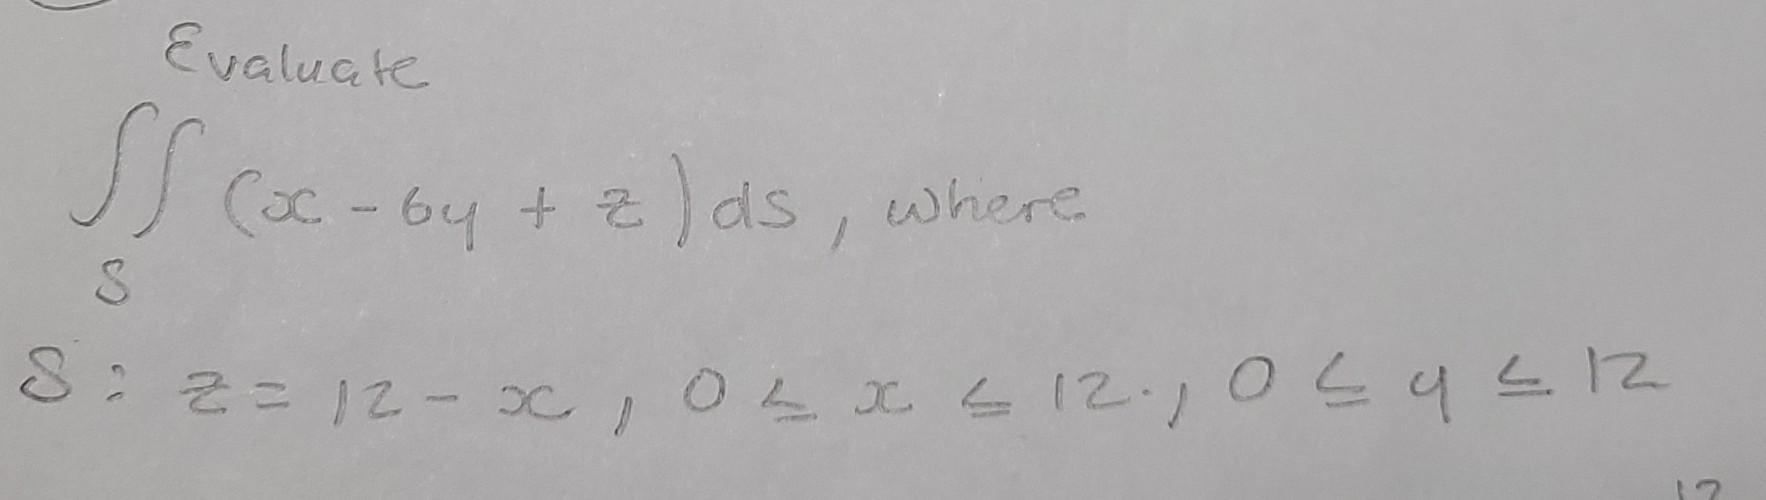 Evaluate
∬ (x - 6y + z) ds, where
S
S: z = 12 - x, 0 ≤ x ≤ 12., 0 ≤ y ≤ 12